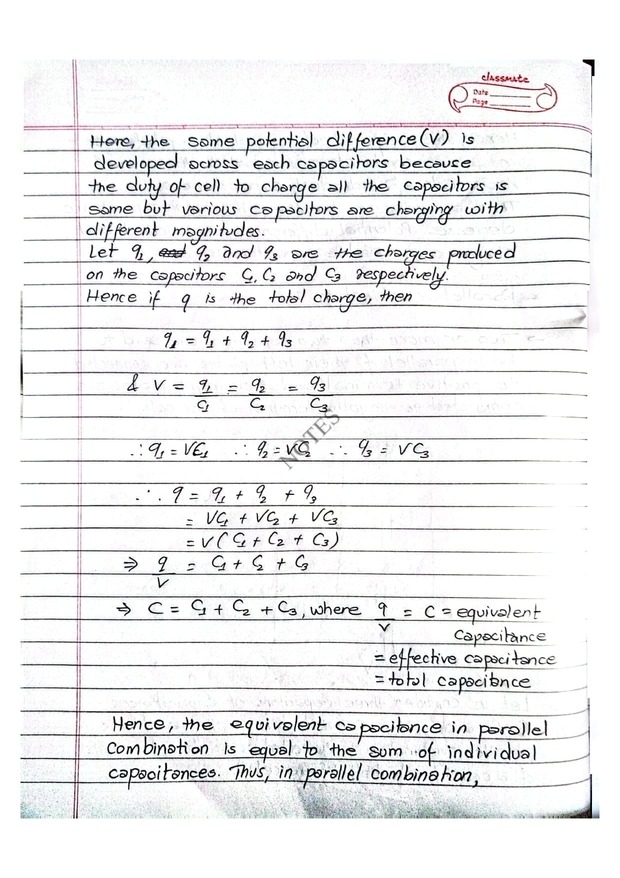 classmate
Date
Page
Here, the same potential difference (V) is
developed across each capacitors because
the duty of cell to charge all the capacitors is
same but various capacitors are charging with
different magnitudes.
Let q1, and q2 and q3 are the charges produced
on the capacitors C1, C2 and C3 respectively.
Hence if q is the total charge, then
q1 = q1 + q2 + q3
& V = q1/C1 = q2/C2 = q3/C3
∴ q1 = VC1 ∴ q2 = VC2 ∴ q3 = VC3
NOTES
∴ q = q1 + q2 + q3
= VC1 + VC2 + VC3
= V( C1 + C2 + C3)
⇒ q/V = C1 + C2 + C3
⇒ C = C1 + C2 + C3, where q/V = C = equivalent
capacitance
= effective capacitance
= total capacitance
Hence, the equivalent capacitance in parallel
combination is equal to the sum of individual
capacitances. Thus, in parallel combination,